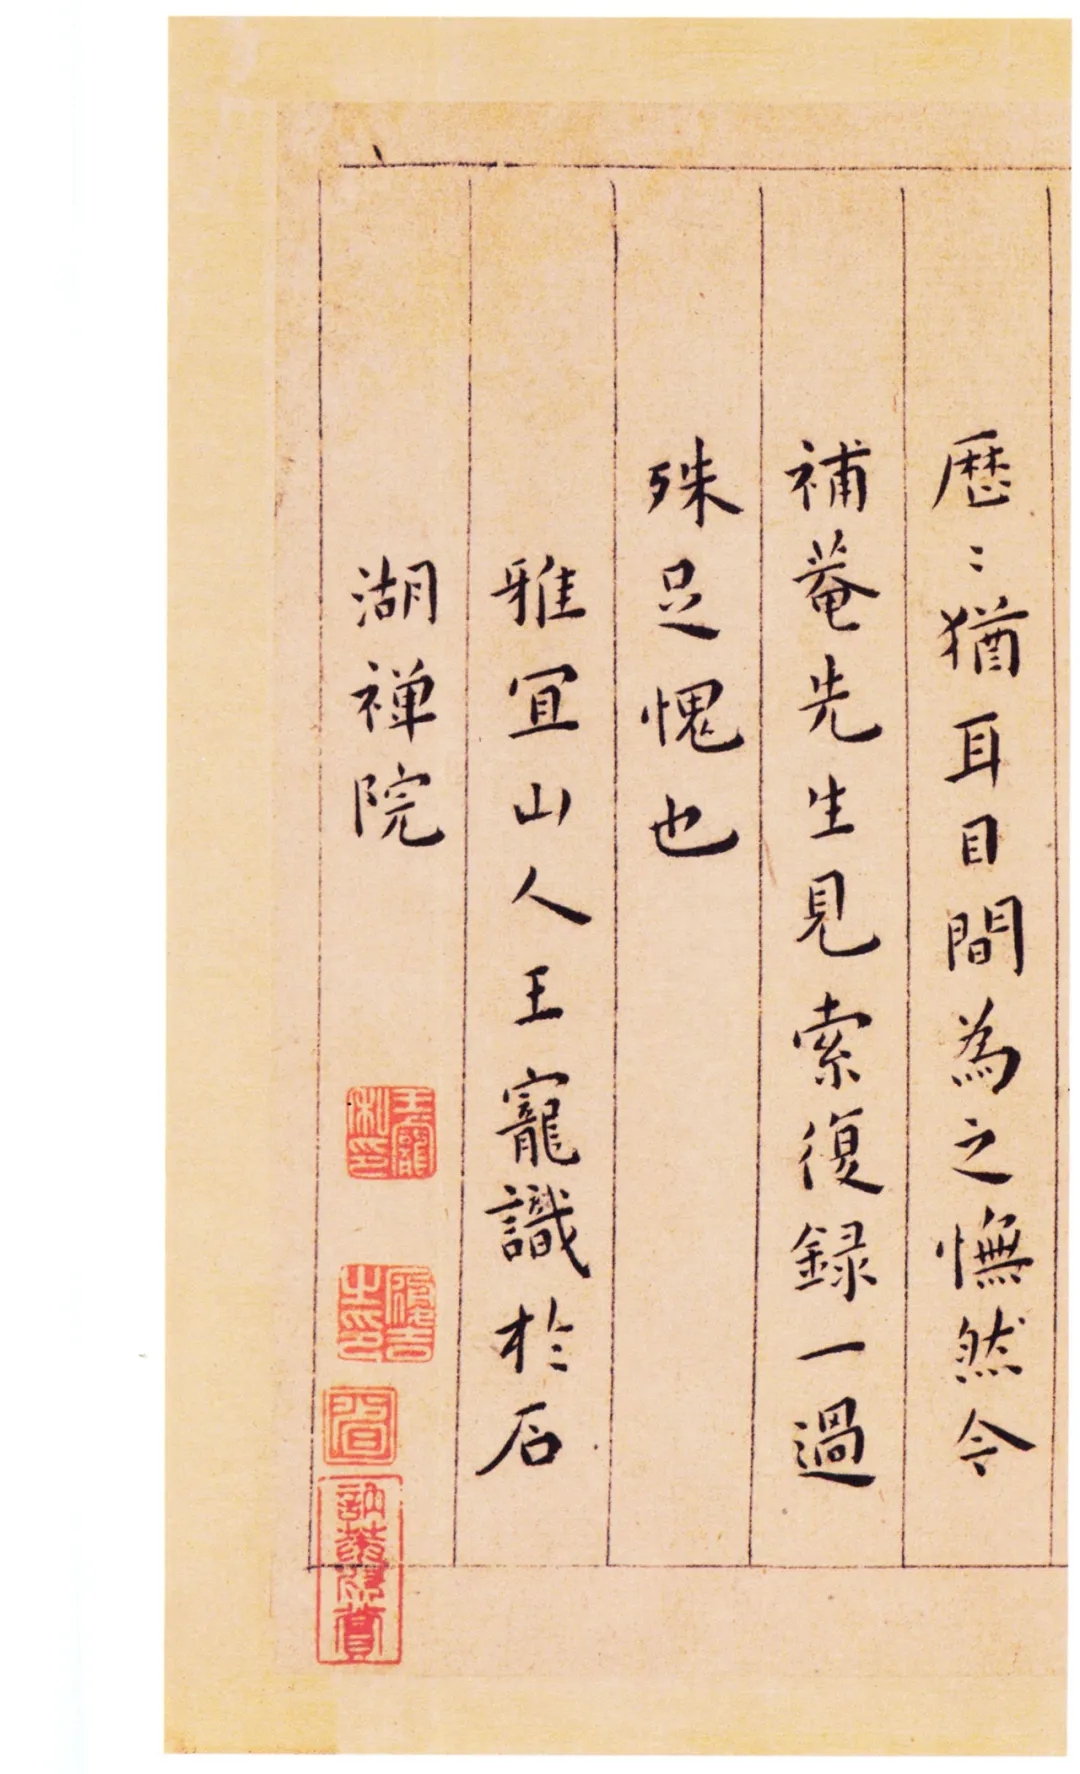 歷〻猶耳目間為之憮然今
補菴先生見索復録一過
殊足愧也
雅宜山人王寵識於石
湖禅院
王寵私印
履吉之印